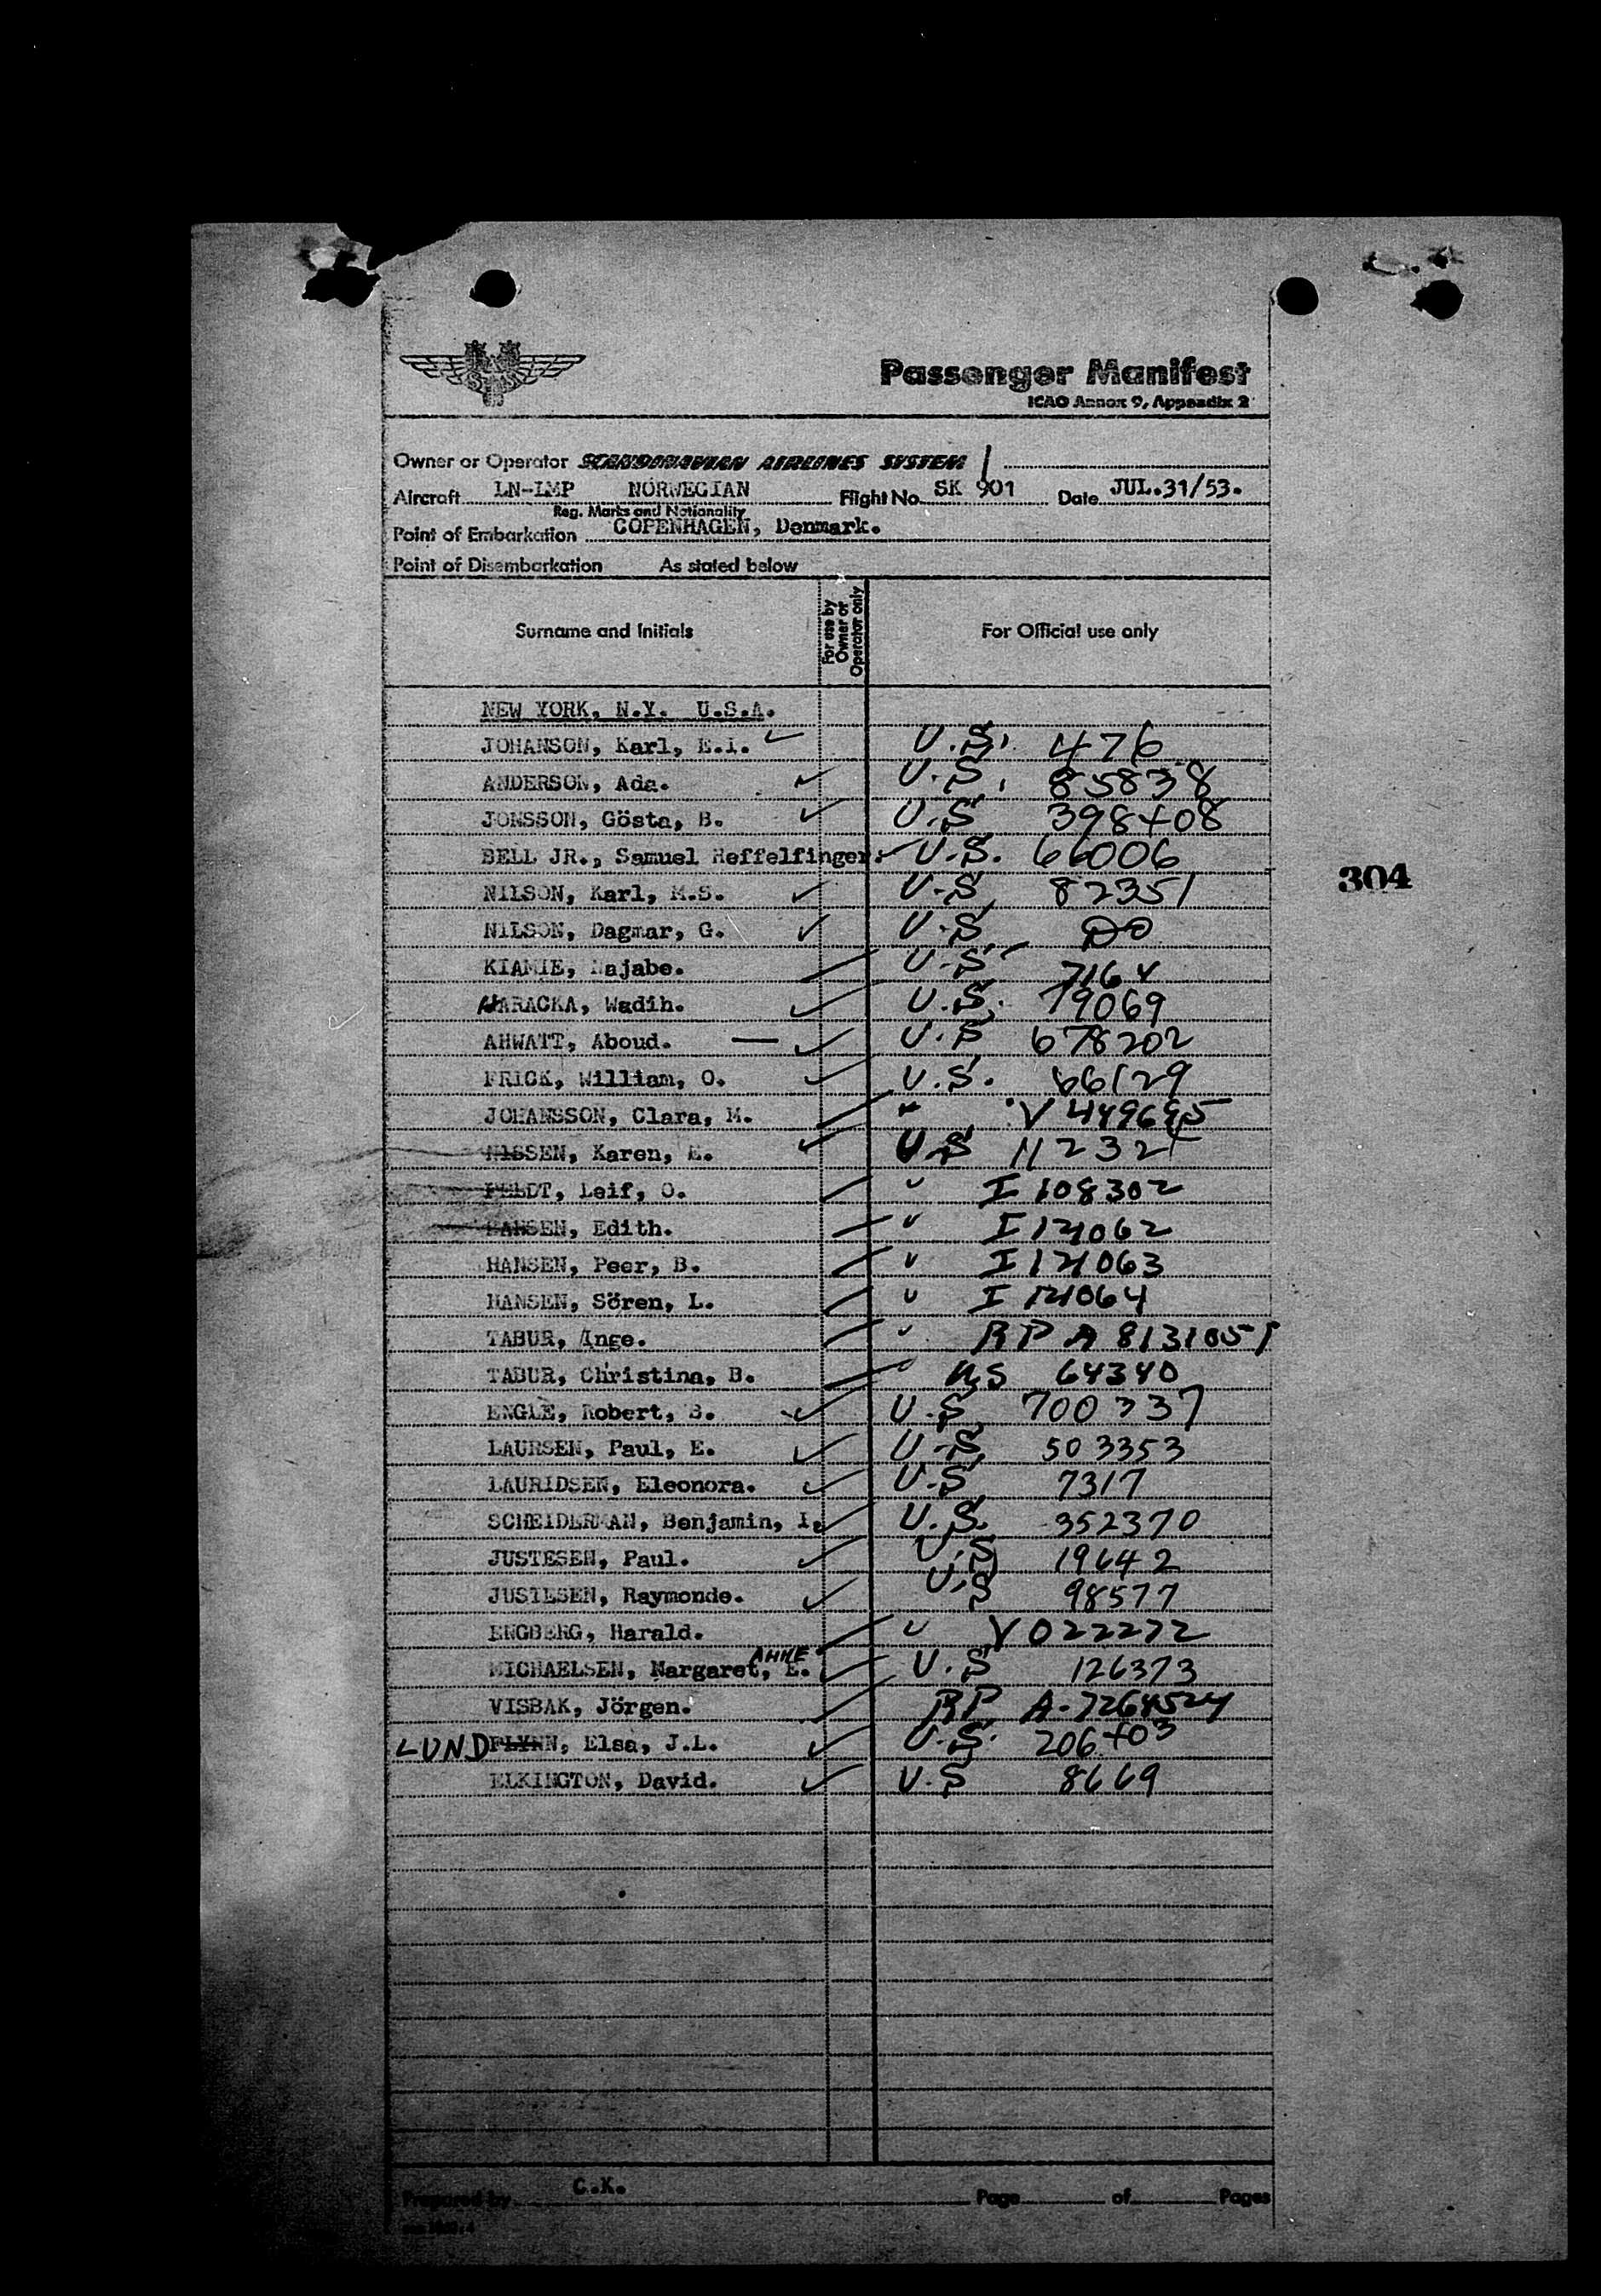 SAS
Passenger Manifest
ICAO Annex 9, Appendix 2
Owner or Operator SCANDINAVIAN AIRLINES SYSTEM
Aircraft LN-LMP NORWEGIAN Flight No. SK 901 Date JUL.31/53.
Reg. Marks and Nationality
Point of Embarkation COPENHAGEN, Denmark.
Point of Disembarkation As stated below
Surname and Initials For use by Owner or Operator only For Official use only
NEW YORK, N.Y. U.S.A.
JOHANSON, Karl, E.I. U.S. 476
ANDERSON, Ada. U.S. 85838
JONSSON, Gösta, B. U.S 398408
BELL JR., Samuel Heffelfinger. U.S. 66006
304
NILSON, Karl, M.S. U.S 82351
NILSON, Dagmar, G. U.S DO
KIAMIE, Najabe. U.S 7164
HARACKA, Wadih. U.S. 79069
AHWATT, Aboud. U.S 678202
FRICK, William, O. U.S. 66129
JOHANSSON, Clara, M. V 449695
NISSEN, Karen, E. U.S 11232
FELDT, Leif, O. I 108302
HANSEN, Edith. I 121062
HANSEN, Peer, B. I 121063
HANSEN, Sören, L. I 121064
TABUR, Inge. RP A 8131051
TABUR, Christina, B. US 64340
ENGLE, Robert, B. U.S 700337
LAURSEN, Paul, E. U.S 503353
LAURIDSEN, Eleonora. U.S 7317
SCHEIDERMAN, Benjamin, I. U.S. 352370
JUSTESEN, Paul. U.S 19642
JUSTESEN, Raymonde. U.S 98577
ENGBERG, Harald. V 022272
ANNE
MICHAELSEN, Margaret, E. U.S 126373
VISBAK, Jörgen. RP A-7264524
LUND FLYNN, Elsa, J.L. U.S. 206403
ELKINGTON, David. U.S 8669
Prepared by C.K. Page of Pages